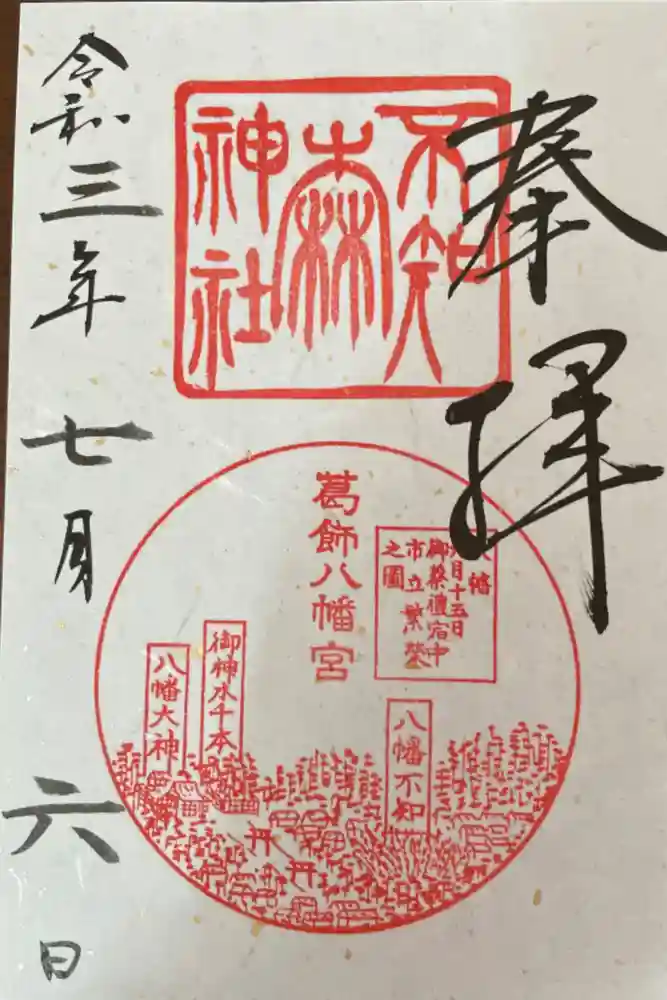 奉拝
不知
森
神社
葛飾八幡宮
八幡
八月十五日
御祭禮宿中
市立繁栄
之圖
八幡不知
御神木千本
八幡大神
令和三年七月六日